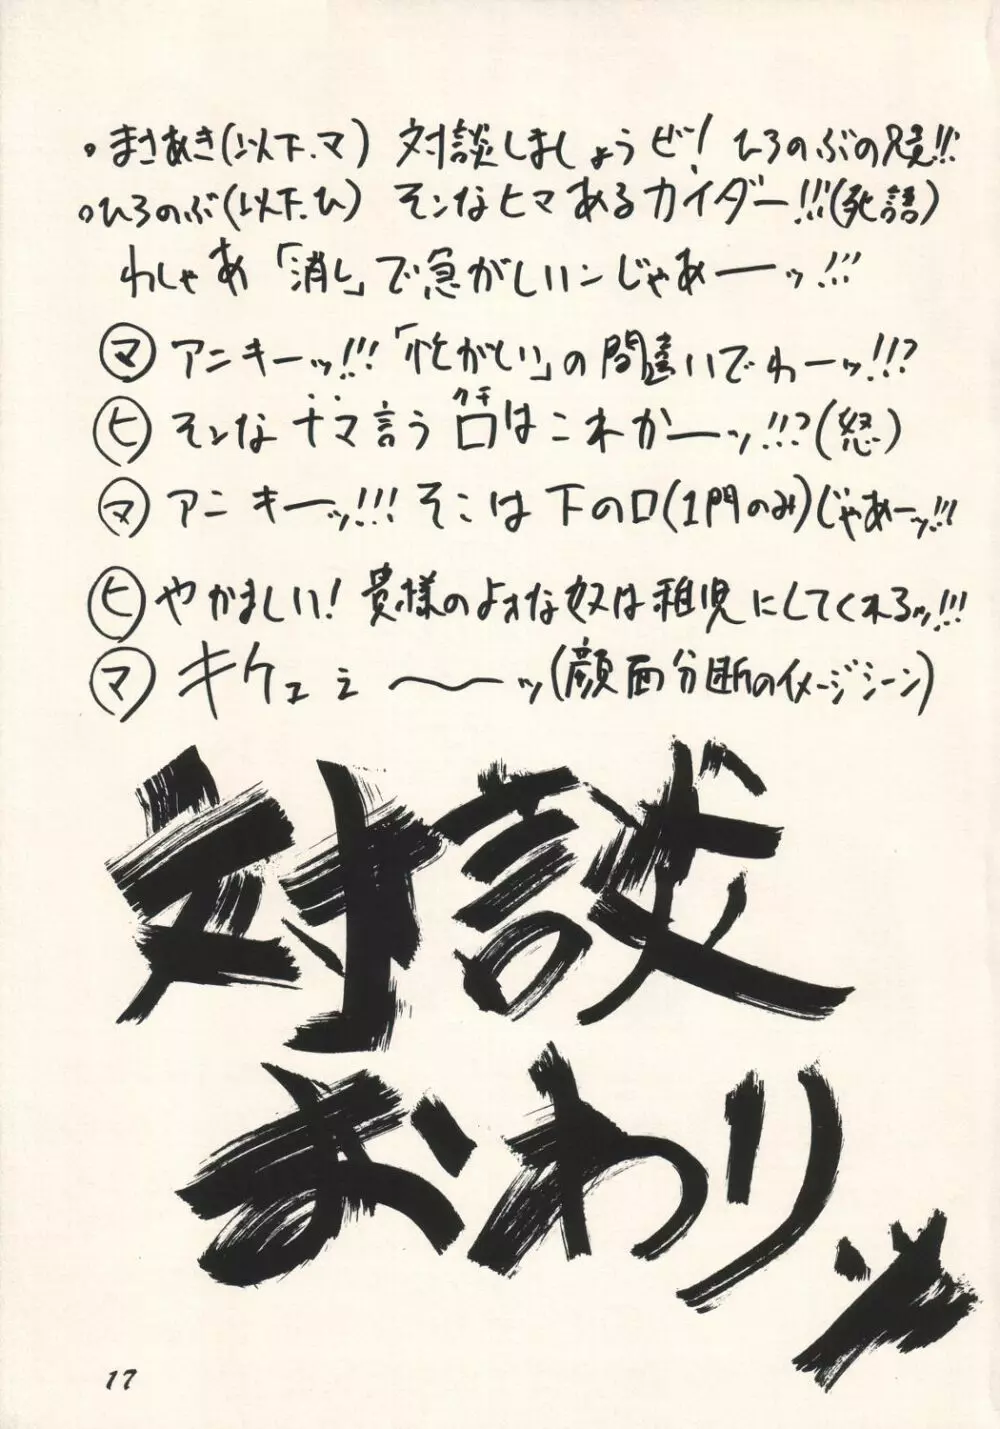 ◦まさあき(以下.マ) 対談しましょうど! ひろのぶの兄貴!!
◦ひろのぶ(以下.ひ) そンなヒマあるカイダー!!!(死語)
わしゃあ「消し」で急がしいンじゃあーーッ!!!
マ アニキーッ!!!「忙がしい」の間違いでわーッ!!?
ヒ そンなナマ言う口はこれかーーッ!!?(怒)
クチ
マ アニキーッ!!! そこは下の口(1門のみ)じゃあーッ!!!
ヒ やかましい! 貴様のよォな奴は稚児にしてくれるッ!!!
マ キケェェ〜〜ッ(顔面分断のイメージシーン)
対談
おわりッ
17